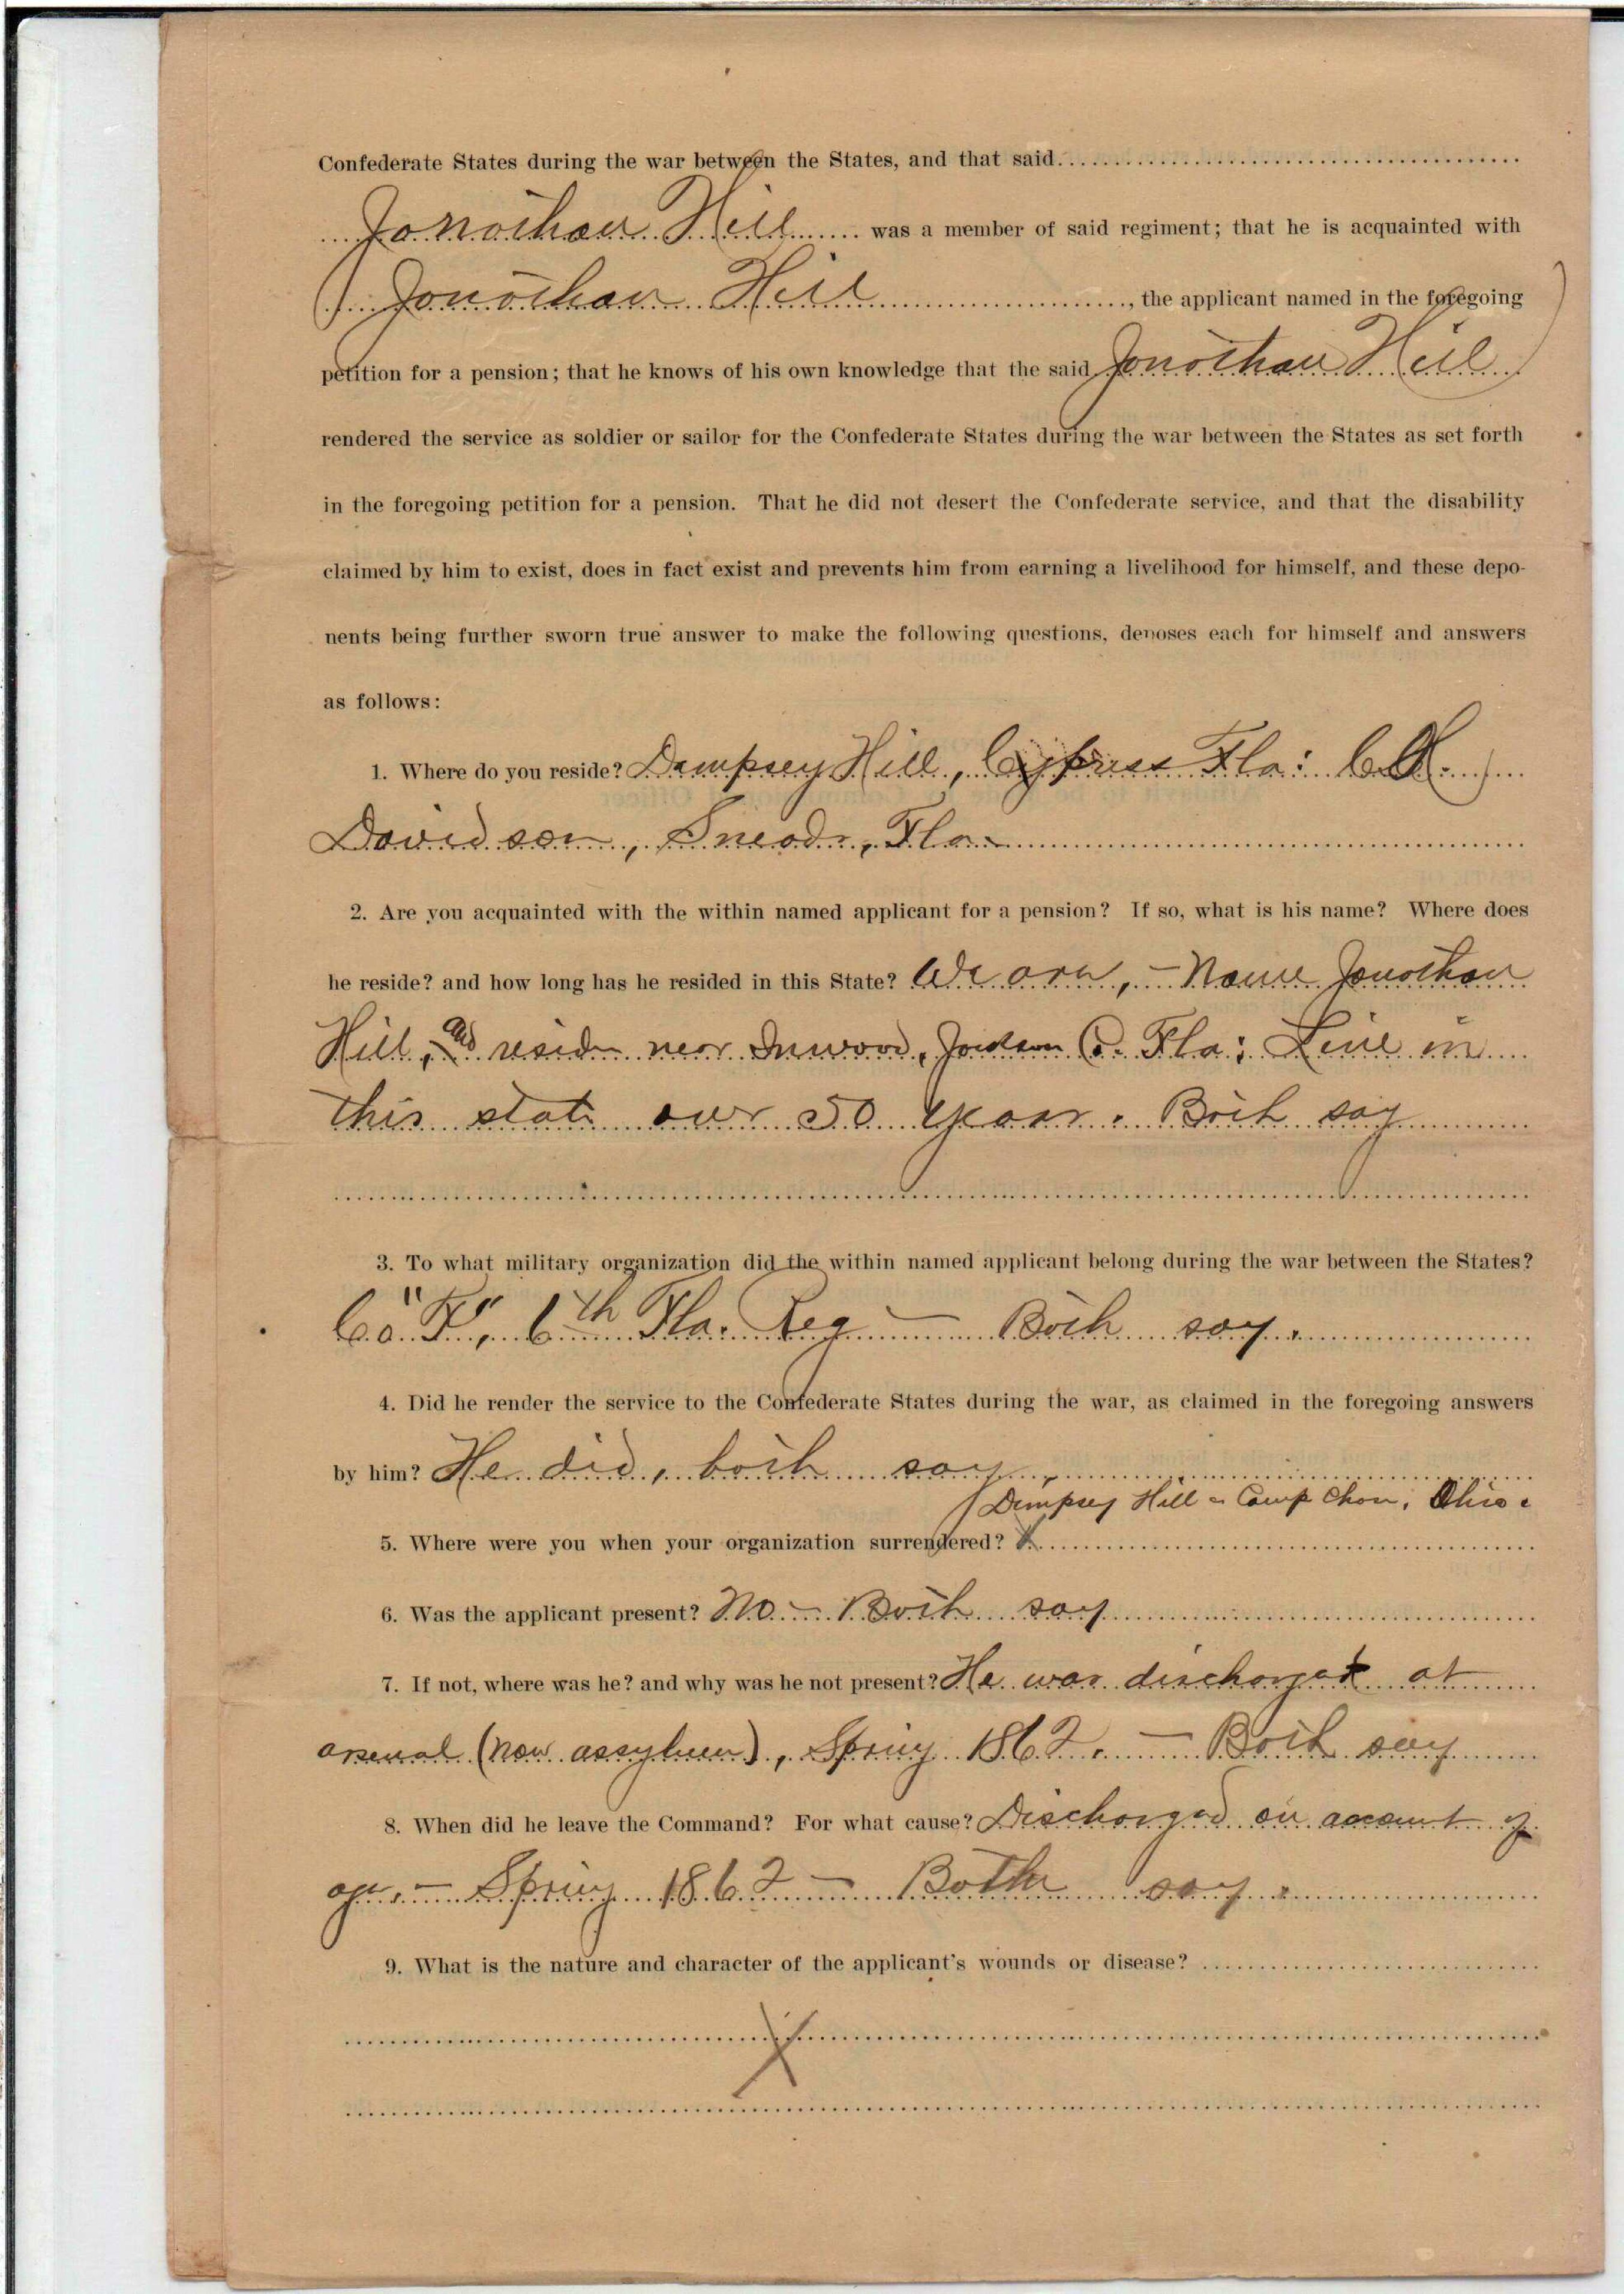 Confederate States during the war between the States, and that said
Jonothan Hill was a member of said regiment; that he is acquainted with
Jonothan Hill, the applicant named in the foregoing
petition for a pension; that he knows of his own knowledge that the said Jonothan Hill
rendered the service as soldier or sailor for the Confederate States during the war between the States as set forth
in the foregoing petition for a pension. That he did not desert the Confederate service, and that the disability
claimed by him to exist, does in fact exist and prevents him from earning a livelihood for himself, and these depo-
nents being further sworn true answer to make the following questions, deposes each for himself and answers
as follows:
1. Where do you reside? Dempsey Hill, Cypress Fla: C.H.
Davidson, Sneads, Fla.
2. Are you acquainted with the within named applicant for a pension? If so, what is his name? Where does
he reside? and how long has he resided in this State? We are, - Name Jonothan
Hill, and reside near Inwood, Jackson Co. Fla; Live in
this state over 50 years. Both say
3. To what military organization did the within named applicant belong during the war between the States?
Co "F", 6th Fla. Reg - Both say.
4. Did he render the service to the Confederate States during the war, as claimed in the foregoing answers
by him? He did, both say.
Dempsey Hill - Camp Chase, Ohio.
5. Where were you when your organization surrendered? X
6. Was the applicant present? No - Both say
7. If not, where was he? and why was he not present? He was discharged at
arsenal (now assylum), Spring 1862. - Both say
8. When did he leave the Command? For what cause? Discharged on account of
age. - Spring 1862 - Both say.
9. What is the nature and character of the applicant's wounds or disease?
X